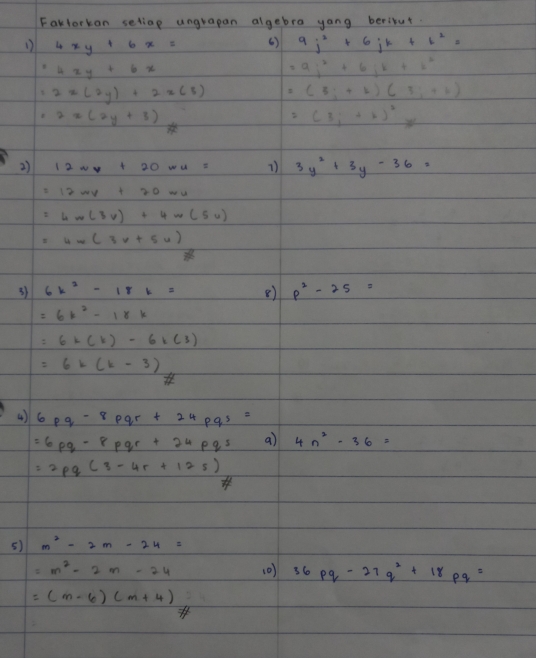 Faktorkan setiap ungkapan algebra yang berikut.
1) 4xy + 6x =
= 4xy + 6x
= 2x(2y) + 2x(3)
= 2x(2y + 3) #
2) 12wv + 20wu =
= 12wv + 20wu
= 4w(3v) + 4w(5u)
= 4w(3v + 5u) #
3) 6k² - 18k =
= 6k² - 18k
= 6k(k) - 6k(3)
= 6k(k - 3) #
4) 6pq - 8pqr + 24pqs =
= 6pq - 8pqr + 24pqs
= 2pq(3 - 4r + 12s) #
5) m² - 2m - 24 =
= m² - 2m - 24
= (m - 6)(m + 4) #
6) 9j² + 6jk + k² =
= 9j² + 6jk + k²
= (3j + k)(3j + k)
= (3j + k)² #
7) 3y² + 3y - 36 =
8) p² - 25 =
9) 4n² - 36 =
10) 36pq - 27q² + 18pq =